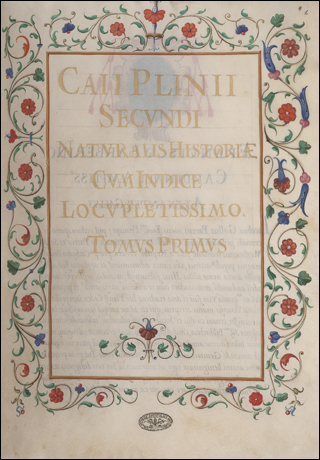 CAII PLINII
SECVNDI
NATVRALIS HISTORIÆ
CVM INDICE
LOCVPLETISSIMO.
TOMVS PRIMVS